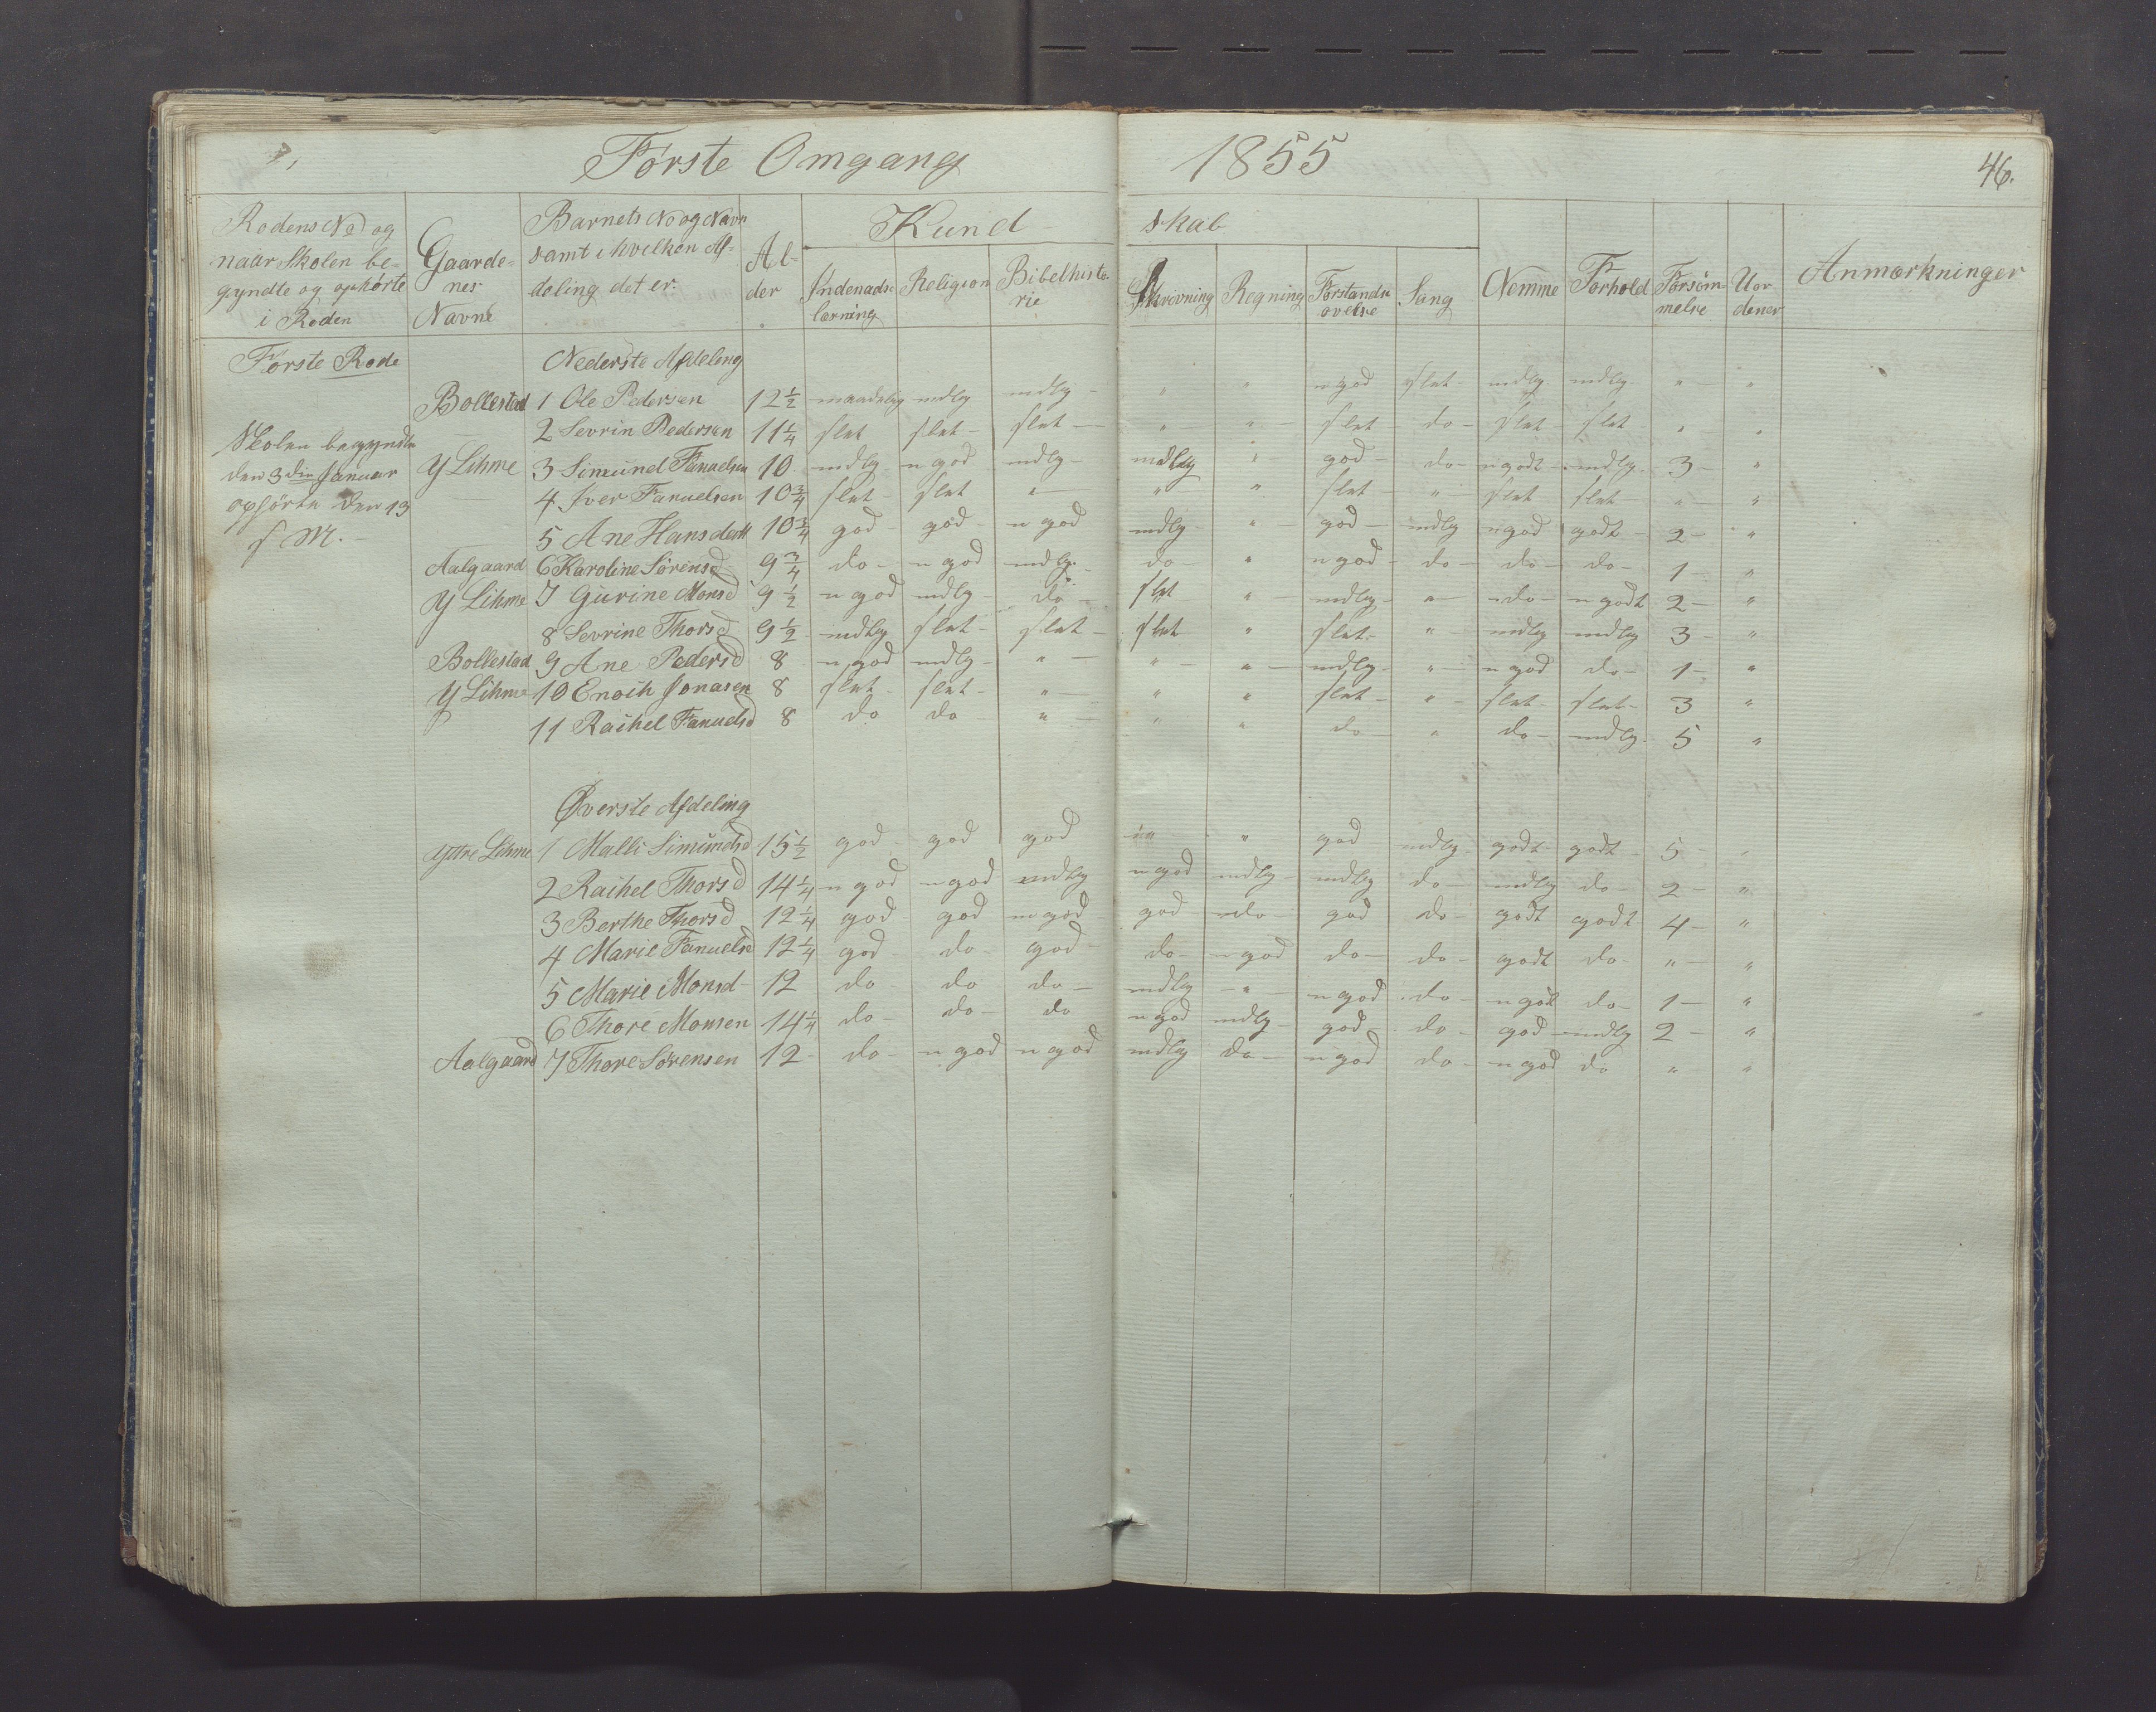 Første Omgang 1855
46.
Rodens No og naar Skolen begyndte og ophørte i Roden | Gaardenes Navne | Barnets No og Navn samt i hvilken Afdeling det er. | Alder | Kundskab | Nemme | Forhold | Forsømmelse | Uordener | Anmærkninger
Indenadslæsning | Religion | Bibelhistorie | Skrivning | Regning | Forstandsøvelse | Sang
Første Rode
Nederste Afdeling
Skolen begyndte
den 3die Januar
ophørte den 13
s. M. -
Bollestad 1 Ole Pedersen 12½ maadelig mdlg mdlg - " " n god slet - mdlg mdlg - " - "
2 Sevrin Pedersen 11¼ slet slet - slet - " - " - slet do - slet - slet " - "
Y Lihme 3 Simund Fanuelsen 10 mdlg n god mdlg - mdlg " god - do - n godt - mdlg - 3 - "
4 Iver Fanuelsen 10¾ slet - slet " - " - " slet - " - slet slet - " - "
5 Ane Hansdatt 10¾ god - god - n god mdlg - " - god - mdlg n god godt - 2 - "
Aalgaard 6 Karoline Sørensd 9¾ do - n god mdlg. do - " n god - do - do - do - 1 - "
Y Lihme 7 Gurine Monsd 9½ n god mdlg - do - slet " - mdlg - " - do - n godt 2 - "
8 Sevrine Thorsd 9½ - mdlg slet - slet - slet " slet - " - mdlg mdlg 3 - "
Bollestad 9 Ane Pedersd 8 n god mdlg - " - " - " - mdlg - " - n god do - 1 - "
Y Lihme 10 Enoch Jonasen 8 slet - slet - " - " " slet - " - slet - slet - 3 "
11 Rachel Fanuelsd 8 do do - " - " " do - " do - mdlg - 5 "
Øverste Afdeling
Yttre Lihme 1 Malli Simundsd 15½ god - god god " god mdlg - godt godt - 5 - "
2 Rachel Thorsd 14¼ n god n god mdlg n god mdlg - mdlg do - mdlg do - 2 - "
3 Berthe Thorsd 12¼ god god n god - god do - god do - godt godt 4 - "
4 Marie Fanuelsd 12¼ god - do - god - do - n god do - do - godt do - " - "
5 Marie Monsd - 12 do - do do - mdlg - " - n god do - n god do - 1 - "
6 Thore Monsen 14¼ do - do - do n god mdlg - god - do - god mdlg 2 - "
Aalgaard 7 Thore Sørensen 12 - do - n god n god mdlg do - n god do - n god do " "